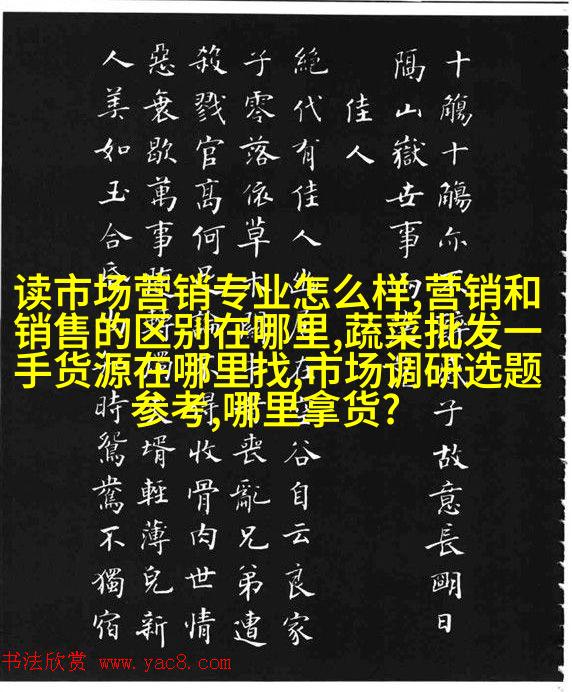 读市场营销专业怎么样,营销和
销售的区别在哪里,蔬菜批发一
手货源在哪里找,市场调研选题
参考,哪里拿货?
十觴十觴亦子故意長明日
隔山嶽世事
佳人
絕代有佳人在谷自云良家
子零落依草木喪亂兄弟遭
殺戮官高何足論得收骨肉世情
惡衰歇萬事婿輕薄兒新
人美如玉合時鴛鴦不獨宿
书法欣赏 www.yac8.com